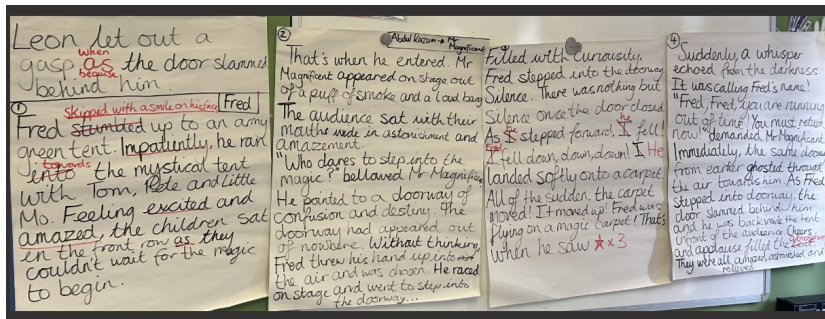 Leon let out a
when
gasp as the door slammed
because
behind him.
① skipped with a smile on his face Fred
Fred stumbled up to an army
green tent. Impatiently, he ran
towards
into the mystical tent
with Tom, Pete and little
Mo. Feeling excited and
amazed, the children sat
in the front row as they
couldn't wait for the magic
to begin.
② Abdul Kazam → Mr Magnificent
That's when he entered. Mr
Magnificent appeared on stage out
of a puff of smoke and a loud bang
The audience sat with their
mouths wide in astonishment and
amazement.
"Who dares to step into the
magic?" bellowed Mr Magnificent
He pointed to a doorway of
confusion and destiny. The
doorway had appeared out
of nowhere. Without thinking,
Fred threw his hand up into
the air and was chosen. He raced
on stage and went to step into
the doorway...
Filled with curiosity,
Fred stepped into the doorway
Silence. There was nothing but
silence once the door closed
he
As I stepped forward, I fell!
I fell down, down, down! I He
landed softly onto a carpet.
All of the sudden, the carpet
moved! It moved up! Fred was
flying on a magic carpet! That's
when he saw ★ x 3
④
Suddenly, a whisper
echoed from the darkness.
It was calling Fred's name!
"Fred, Fred, you are running
out of time! You must return
now!" demanded Mr Magnificent
Immediately, the same door
from earlier ghosted through
the air towards him. As Fred
stepped into doorway, the
door slammed behind him
and he was back inside the tent
infront of the audience Cheers
and applause filled the
They were all amazed, astonished and
relieved.